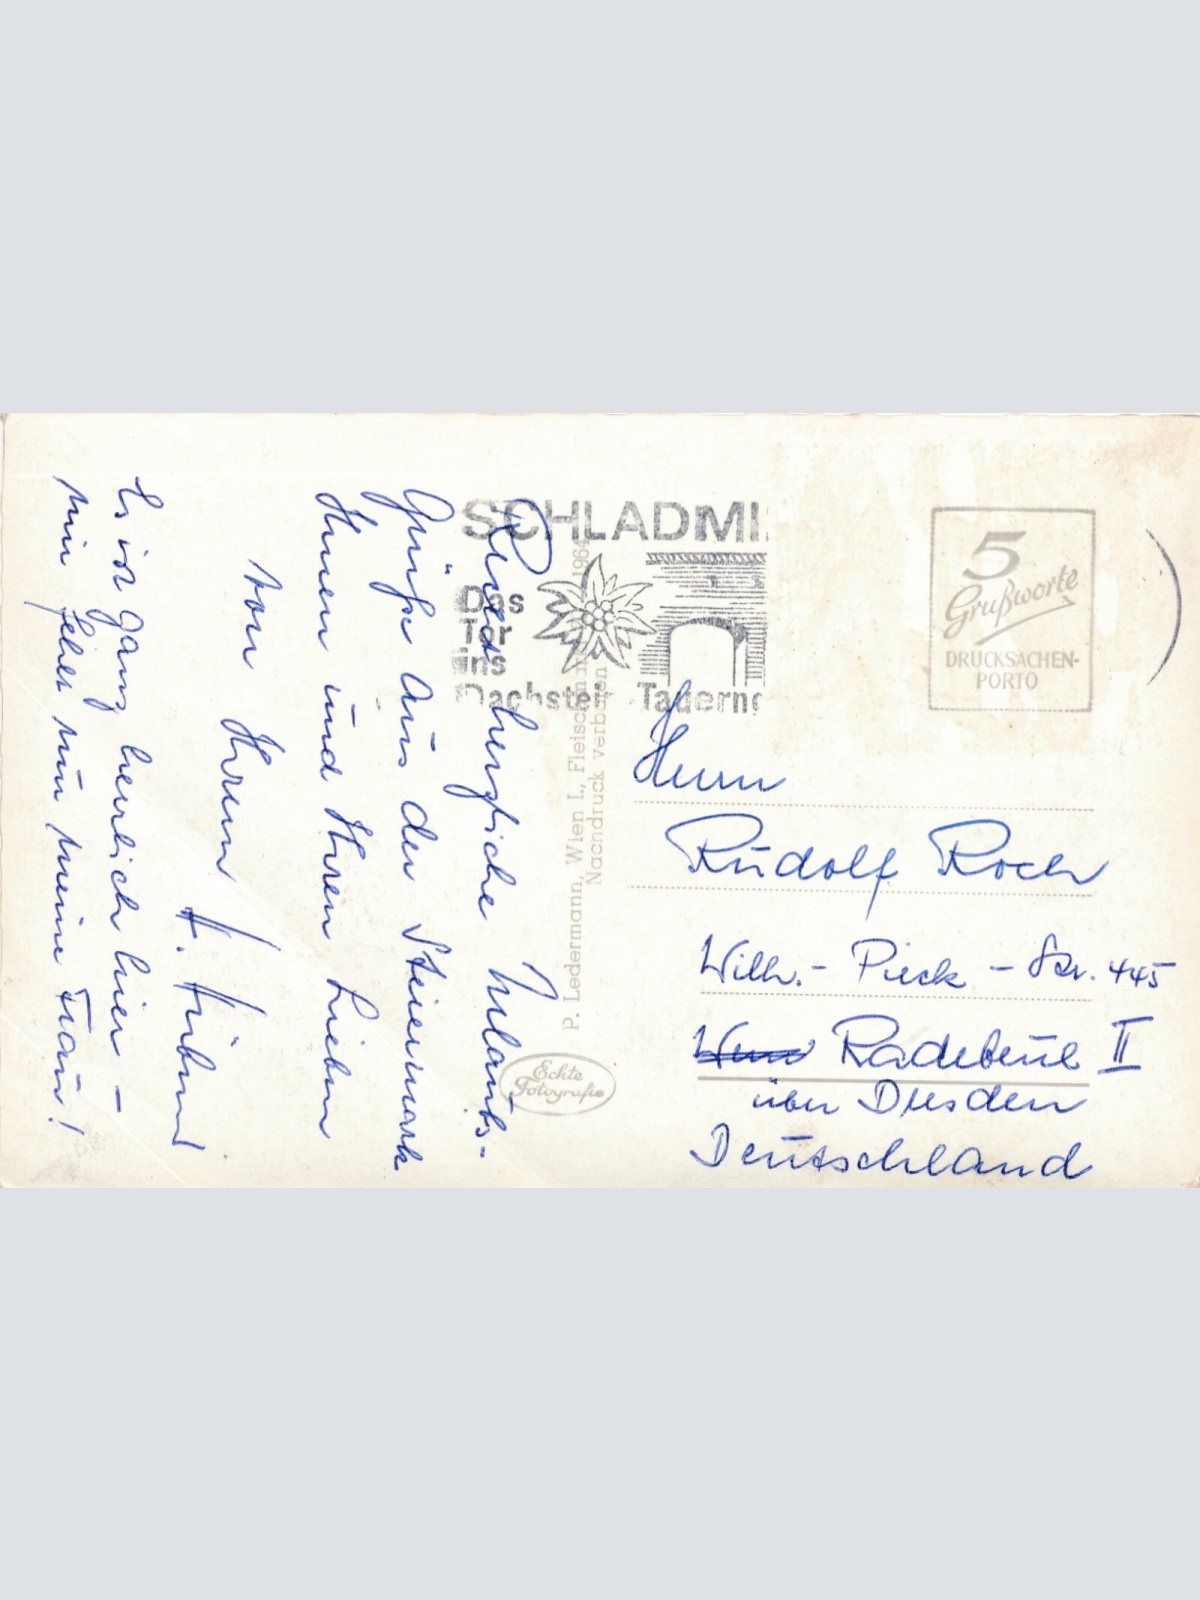 Recht herzliche Urlaubs-
Grüße aus der Steiermark
Ihnen und Ihren Lieben
von Ihrem
Es ist ganz herrlich hier –
mir fehlt nur meine Frau!
SCHLADMI
Das
Tor
ins
Dachstein - Tauerng
P. Ledermann, Wien I., 1964
Nachdruck verboten
Echte
Fotografie
5
Grußworte
DRUCKSACHEN-
PORTO
Herrn
Rudolf Koch
Wilh.- Pieck - Str. 445
Radebeul II
über Dresden
Deutschland